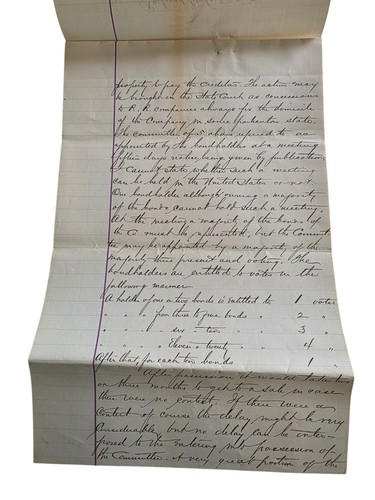 property to pay the creditors. The action may
be brought in the State such as concessions
to R. R. companies always fix the domicile
of the Company in some particular state.
The committee of 5 above referred to are
appointed by the bondholders at a meeting
fifteen days notice being given by publication.
I cannot state whether such a meeting
can be held in the United States or not.
One bondholder although owning a majority
of the bonds cannot hold such a meeting.
At the meeting a majority of the bonds of
the Co must be represented, but the Commit
tee may be appointed by a majority of the
majority then present and voting. The
bondholders are entitled to votes in the
following manner
A holder of one or two bonds is entitled to 1 votes
" " " from three to five bonds " 2 "
" " " six - ten " 3 "
" " " Eleven to twenty " 4 "
After that, for each two bonds 1 "
After possession it would take two
or three months to get to a sale in case
there were no contest. If there were a
contest of course the delay might be very
considerable, but no delay can be inter-
posed to the entering into possession of
the Committee. A very great portion of the